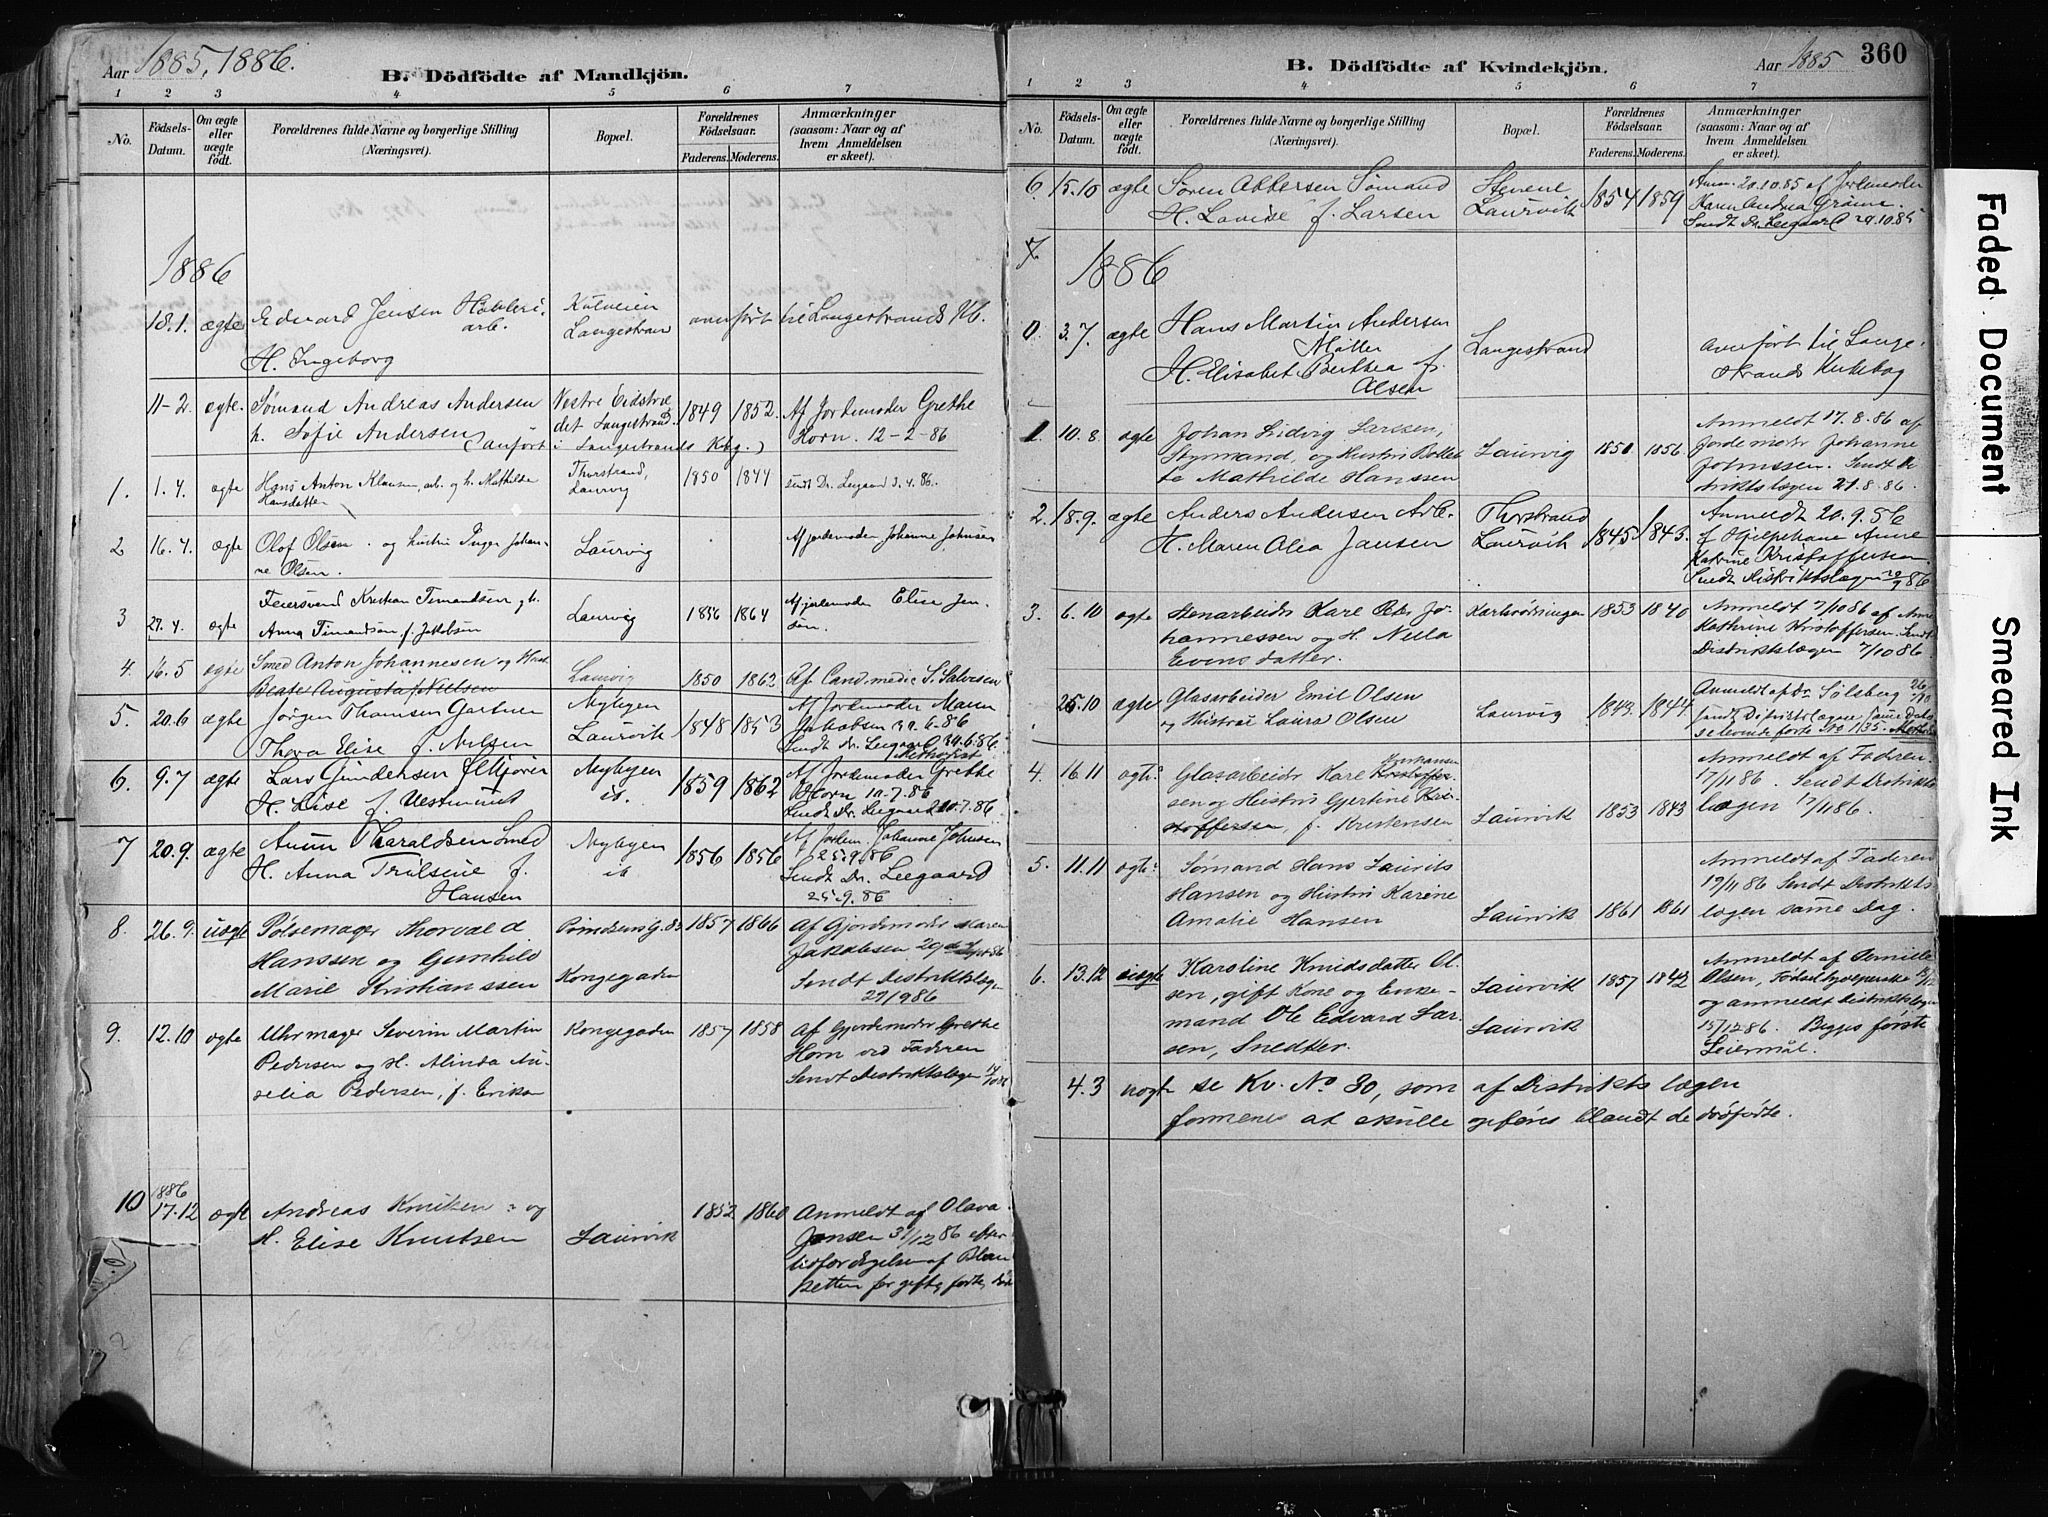 Aar 1885, 1886.
B. Dödfödte af Mandkjön.
1 2 3 4 5 6 7
No.
Födsels-Datum.
Om ægte eller uægte födt.
Forældrenes fulde Navne og borgerlige Stilling (Næringsvei).
Bopæl.
Forældrenes Födselsaar.
Faderens. Moderens.
Anmærkninger (saasom: Naar og af hvem Anmeldelsen er skeet).
1886
18.1. ægte Edvard Jensen
arb.
Langestran overført til Langestrands Kb.
H. Ingeborg
11-2. ægte. Sømand Andreas Andersen Vestre 1849 1852. Af Jordemoder Grethe
h. Sofie Andersen (anført i Langestrands Kbg.) Horn. 12-2-86
1. 1.4. ægte Hans Anton Klausen, arb. og h. Mathilde Thorstrand, 1850 1844 sendt Dr. Leegaard 3.4.86.
Hansdatter Laurvig
2 16.4. ægte Olof Olsen og hustru Inger Johan- Laurvig Af jordemoder Johanne Johnsen
ne Olsen.
3 27.4. ægte Kristian Timandsen og h. Laurvig 1836 1864 Af jordemoder Elise Jen-
Anna Timandsen f. Jakobsen sen.
4. 16.5 ægte Smed Anton Johannesen og Laurvig 1850 1862 Af Cand. medic S. Salvesen
Beate Augusta f. Nielsen
5. 20.6 ægte Jørgen Thomsen Gartner Nybyen 1848 1853 Af Jordemoder Maren
Thora Elise f. Nilsen Laurvik Jakobsen
Sendt Dr. Leegaard
Methodist
6. 9.7 ægte Lars Gundersen Nybyen 1859 1862 Af Jordemoder Grethe
H. Lise f. ib. Horn 10.7.86
Sendt Dr. Leegaard 10.7.86
7 20.9. ægte Haraldsen Smed Nybyen 1856 1856 Af Jordem. Johanne Johnsen
H. Anna f. ib 25.9.86
Hansen Sendt Dr. Leegaard
25.9.86
8. 26.9. uægte Pølsemager Thorvald 1857 1866 Af Gjordemoder Maren
Hanssen og Gunhild Jakobsen
Marie Kristianssen Kongegaden Sendt Distriktslægen
29/9 86
9. 12.10 ægte Uhrmager Severin Martin Kongegaden 1857 1858 Af Gjordemoder Grethe
Pedersen og H. Alinda Au- Horn ved Faderen
relia Pedersen, f. Sendt Distriktslægen
10 1886
17.12 ægte Andreas Knutsen og 1852 1860 Anmeldt af Olava
H. Elise Knutsen Laurvik Jensen 31/12 86 efter
af Blan
ketten for
B. Dödfödte af Kvindekjön.
Aar 1885
360
1 2 3 4 5 6 7
No.
Födsels-Datum.
Om ægte eller uægte födt.
Forældrenes fulde Navne og borgerlige Stilling (Næringsvei).
Bopæl.
Forældrenes Födselsaar.
Faderens. Moderens.
Anmærkninger (saasom: Naar og af hvem Anmeldelsen er skeet).
6. 15.10 ægte Søren Sømand Stenene 1854 1859 Anm. 20.10.85 af Jordemoder
H. Lovise f. Larsen Laurvik Karen Andrea
Sendt Dr. Leegaard 20.10.85
7 1886
0 3.7. ægte Hans Martin Andersen Langestrand overført til Lange-
Møller
H. Elisabet Berthea f. strands Kirkebog
Olsen
1. 10.8 ægte Johan Ludvig Larssen, Laurvig 1850 1856. Anmeldt 17.8.86 af
Styrmand og Hustru Bolet Jordemoder Johanne
te Mathilde Hanssen Johnssen. Sendt Di
striktslægen 21.8.86.
2. 18.9. ægte Anders Andersen Arb. Thorstrand 1845 1843. Anmeldt 20.9.86
H. Maren Olea Jansen Laurvik af Hjelpekone Anne
Katrine Kristoffersen
Sendt Distriktslægen 20/9 86
3. 6.10 ægte Stenarbeider Karl Johannessen og H. Nella 1853 1840 Anmeldt 7/10 86 af Ane
Evensdatter. Kathrine Kristoffersen. Sendt
Distriktslægen 7/10 86
25.10 ægte Glasarbeider Emil Olsen Laurvig 1843. 1844 Anmeldt af Dr. Sølsberg 26/10
og Hustru Laura Olsen sendt Distriktslægen samme Dato
se levende fødte No 135.
4. 16.11 ægte Glasarbeider Karl Kristoffer- Laurvik 1853 1843 Anmeldt af Faderen
sen og Hustru Gjertine Kri- 17/11 86. Sendt Distrikts
stoffersen, f. Kristensen lægen 17/11 86.
5. 11.11 ægte Sømand Hans Laurits Laurvik 1861 1861 Anmeldt af Faderen
Hansen og Hustru Karine 19/11 86 Sendt Distrikts
Amalie Hansen lægen samme Dag.
6. 13.12 uægte Karoline Knudsdatter Ol- Laurvik 1857 1842 Anmeldt af Pernille
sen, gift Kone og Enke- Laurvik Olsen,
mand Ole Edvard Lar- og anmeldt Distriktslægen
sen, Snedker. 15/12 86. Begges første
Leiermål.
4.3 uægte se Kv. No 30, som af Distriktslægen
formenes at skulle opføres blandt de dødfødte.
Faded Document Smeared Ink